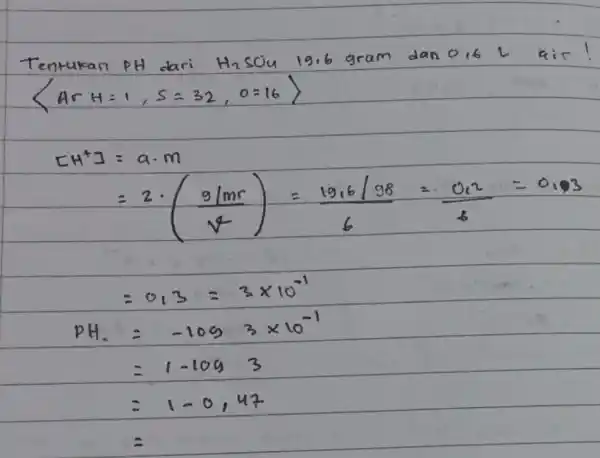 Tentukan PH dari H2SO4 19,6 gram dan 0,6 L air !
< Ar H = 1 , S = 32 , O = 16 >
[H+] = a . m
= 2 . ( g/mr / V ) = 19,6 / 98 / 6 = 0,2 / 6 = 0,03
= 0,3 = 3 x 10^-1
PH. = -log 3 x 10^-1
= 1 - log 3
= 1 - 0,47
=